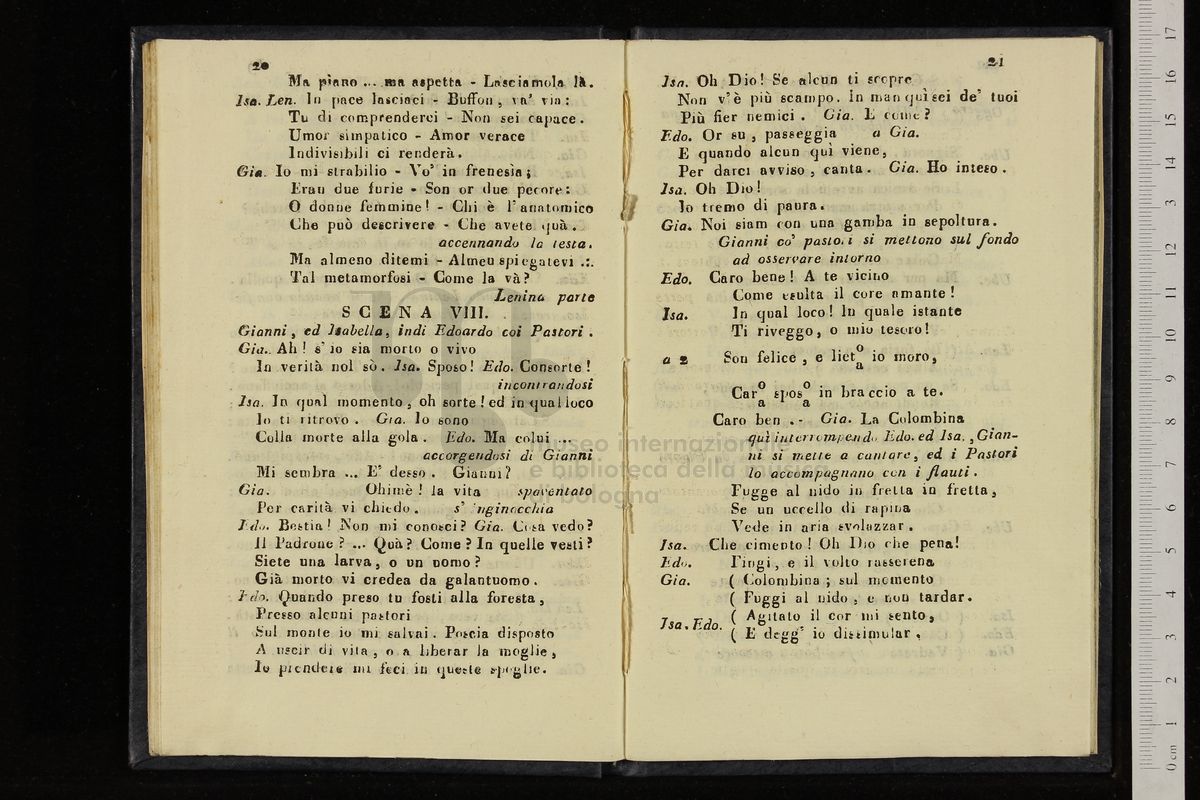 20
Ma piano ... ma aspetta - Lasciamola là.
Isa. Len. In pace lasciaci - Buffon, va' via:
Tu di comprenderci - Non sei capace.
Umor simpatico - Amor verace
Indivisibili ci renderà.
Gia. Io mi strabilio - Vo' in frenesia;
Eran due furie - Son or due pecore:
O donne femmine! - Chi è l'anatomico
Che può descrivere - Che avete quà.
accennando la testa.
Ma almeno ditemi - Almen spiegatevi .:.
Tal metamorfosi - Come la và?
Lenina parte
SCENA VIII.
Gianni, ed Isabella, indi Edoardo coi Pastori.
Gia. Ah! s'io sia morto o vivo
In verità nol sò. Isa. Sposo! Edo. Consorte!
incontrandosi
Isa. In qual momento, oh sorte! ed in qual loco
Io ti ritrovo. Gia. Io sono
Colla morte alla gola. Edo. Ma colui ...
accorgendosi di Gianni
Mi sembra ... E' desso. Gianni?
Gia. Ohimè! la vita spaventato
Per carità vi chiedo. s'inginocchia
Edo. Bestia! Non mi conosci? Gia. Cosa vedo?
Il Padrone? ... Quà? Come? In quelle vesti?
Siete una larva, o un uomo?
Già morto vi credea da galantuomo.
Edo. Quando preso tu fosti alla foresta,
Presso alcuni pastori
Sul monte io mi salvai. Poscia disposto
A uscir di vita, o a liberar la moglie,
Io prendere mi feci in queste spoglie.
21
Isa. Oh Dio! Se alcun ti scopre
Non v'è più scampo. In man quì sei de' tuoi
Più fier nemici. Gia. E come?
Edo. Or su, passeggia a Gia.
E quando alcun quì viene,
Per darci avviso, canta. Gia. Ho inteso.
Isa. Oh Dio!
Io tremo di paura.
Gia. Noi siam con una gamba in sepoltura.
Gianni co' pastori si mettono sul fondo
ad osservare intorno
Edo. Caro bene! A te vicino
Come esulta il core amante!
Isa. In qual loco! In quale istante
Ti riveggo, o mio tesoro!
a 2 Son felice, e liet o/a io moro,
Car o/a spos o/a in braccio a te.
Caro ben .- Gia. La Colombina
quì interrompendo Edo. ed Isa., Gian-
ni si mette a cantare, ed i Pastori
lo accompagnano con i flauti.
Fugge al nido in fretta in fretta,
Se un uccello di rapina
Vede in aria svolazzar.
Isa. Che cimento! Oh Dio che pena!
Edo. Fingi, e il volto rasserena
Gia. ( Colombina; sul momento
( Fuggi al nido, e non tardar.
Isa. Edo. ( Agitato il cor mi sento,
( E degg' io dissimular.
museo internazionale
e biblioteca della musica
di bologna
0 cm 1 2 3 4 5 6 7 8 9 10 11 12 13 14 15 16 17